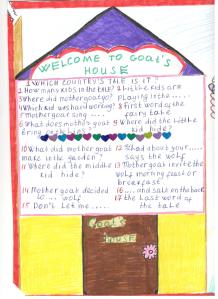 WELCOME TO GOAT'S
HOUSE
1 WHICH COUNTRY'S TALE IS IT?
2 How many kids in the tale?
3 Where did mother goat go?
4 Which kid was hard working?
5 Mother goat sing ....
6 What does mother goat
bring
7 Little kids are
playing in the .....
8 First word of the
fairy tale
9 Where did the little
kid hide?
10 What did mother goat
make in the garden?
11 Where did the middle
kid hide?
12 "..... about your ....."
says the wolf
13 Mother goat invite the
wolf morning feast or
breakfast.
14 Mother goat decided
to .... wolf
15 Don't let me .....
16 ..... and salt on the back
17 the last word of
the tale
Goat's
HOUSE